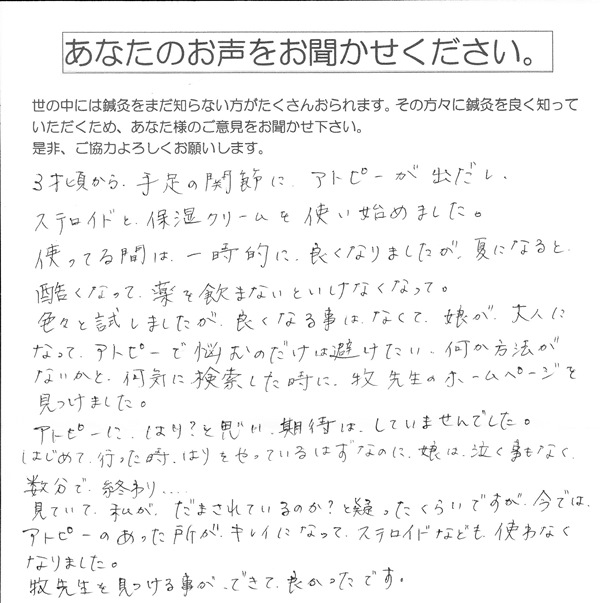 あなたのお声をお聞かせください。
世の中には鍼灸をまだ知らない方がたくさんおられます。その方々に鍼灸を良く知って
いただくため、あなた様のご意見をお聞かせ下さい。
是非、ご協力よろしくお願いします。
3才頃から、手足の関節に、アトピーが出だし、
ステロイドと、保湿クリームを使い始めました。
使ってる間は、一時的に、良くなりましたが、夏になると、
酷くなって、薬を飲まないといけなくなって。
色々と試しましたが、良くなる事は、なくて、娘が、大人に
なって、アトピーで悩むのだけは避けたい、何か方法が
ないかと、何気に検索した時に、牧先生のホームページを
見つけました。
アトピーに、はり?と思い、期待は、していませんでした。
はじめて、行った時、はりをやっているはずなのに、娘は、泣く事もなく、
数分で、終わり.....
見ていて、私が、だまされているのか?と疑ったくらいですが、今では、
アトピーのあった所が、キレイになって、ステロイドなども、使わなく
なりました。
牧先生を見つける事が、できて、良かったです。